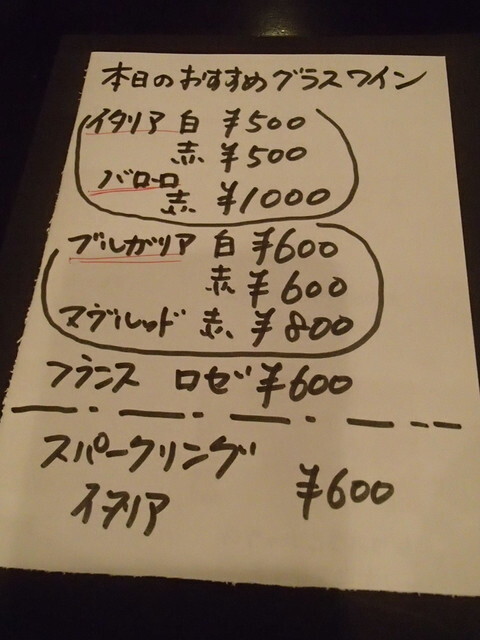 本日のおすすめグラスワイン
イタリア 白 ¥500
赤 ¥500
バローロ
赤 ¥1000
ブルガリア 白 ¥600
赤 ¥600
マヴルッド 赤 ¥800
フランス ロゼ ¥600
スパークリング
¥600
イタリア